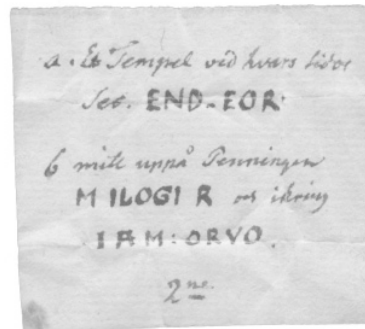 a. Et Tempel ved hvars sidor
Set. END-EOR
6 mitt uppå Penningen
M ILOGI R och ikring
I A M: ORVO.
2 ne.